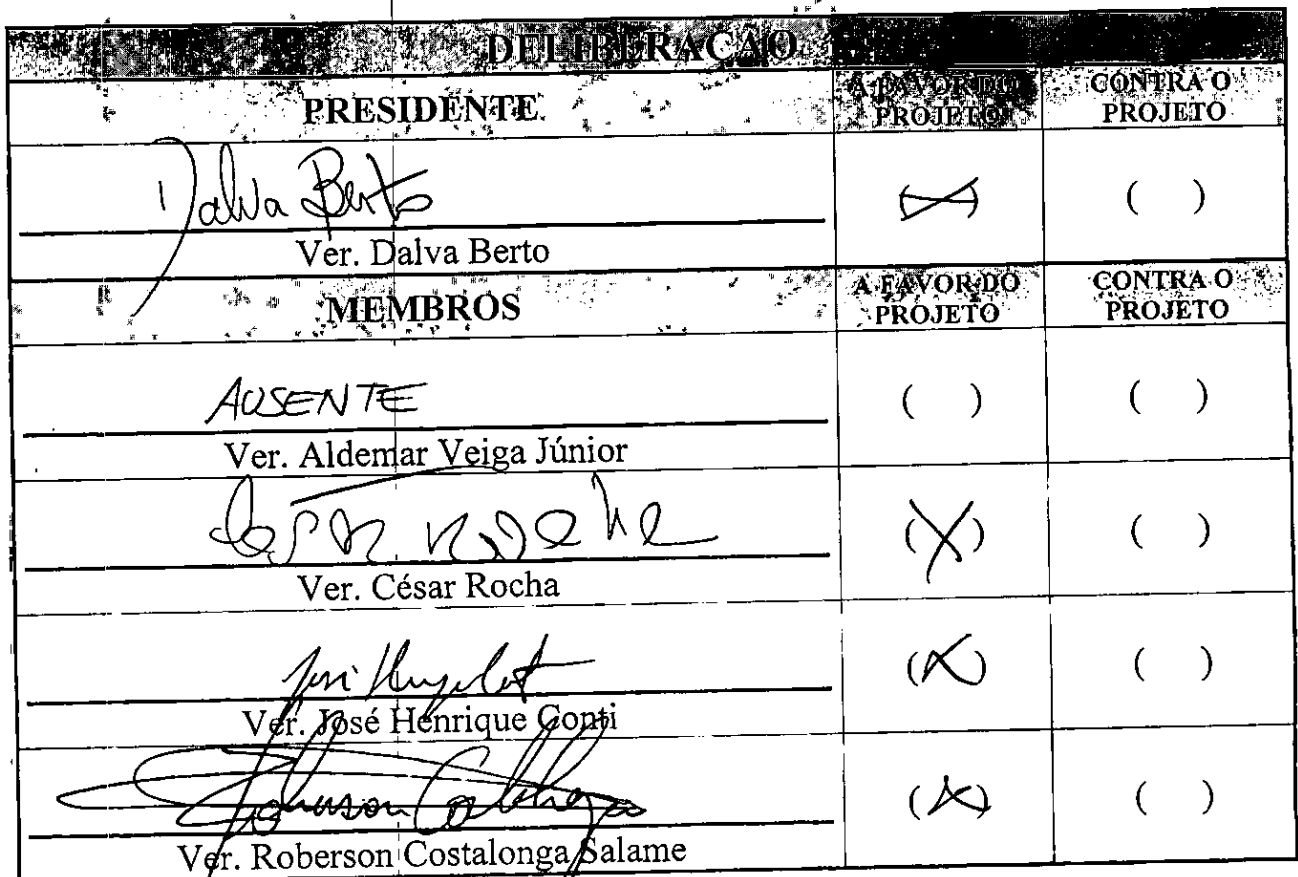 DELIBERAÇÃO
PRESIDENTE
A FAVOR DO PROJETO
CONTRA O PROJETO
Dalva Berto
(X)
( )
Ver. Dalva Berto
MEMBROS
A FAVOR DO PROJETO
CONTRA O PROJETO
AUSENTE
( )
( )
Ver. Aldemar Veiga Júnior
(X)
( )
Ver. César Rocha
(X)
( )
Ver. José Henrique Conti
(X)
( )
Ver. Roberson Costalonga Salame